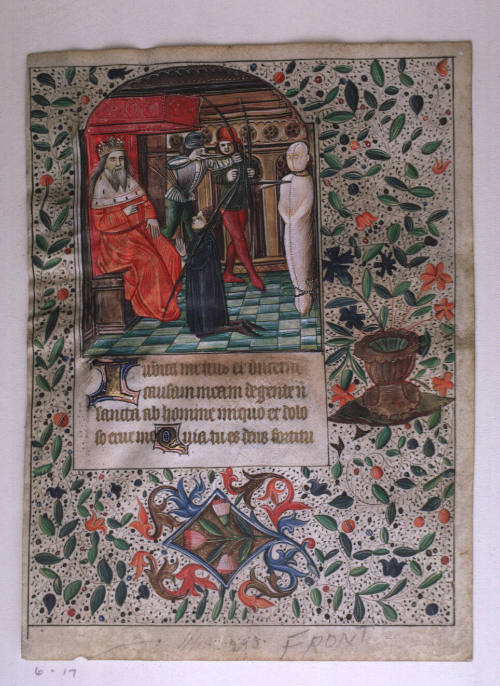 Iudica me deus et discerne
causam meam de gente n
sancta ab homine iniquo et dolo
so erue me Quia tu es deus fortitu
FRONT
6-17